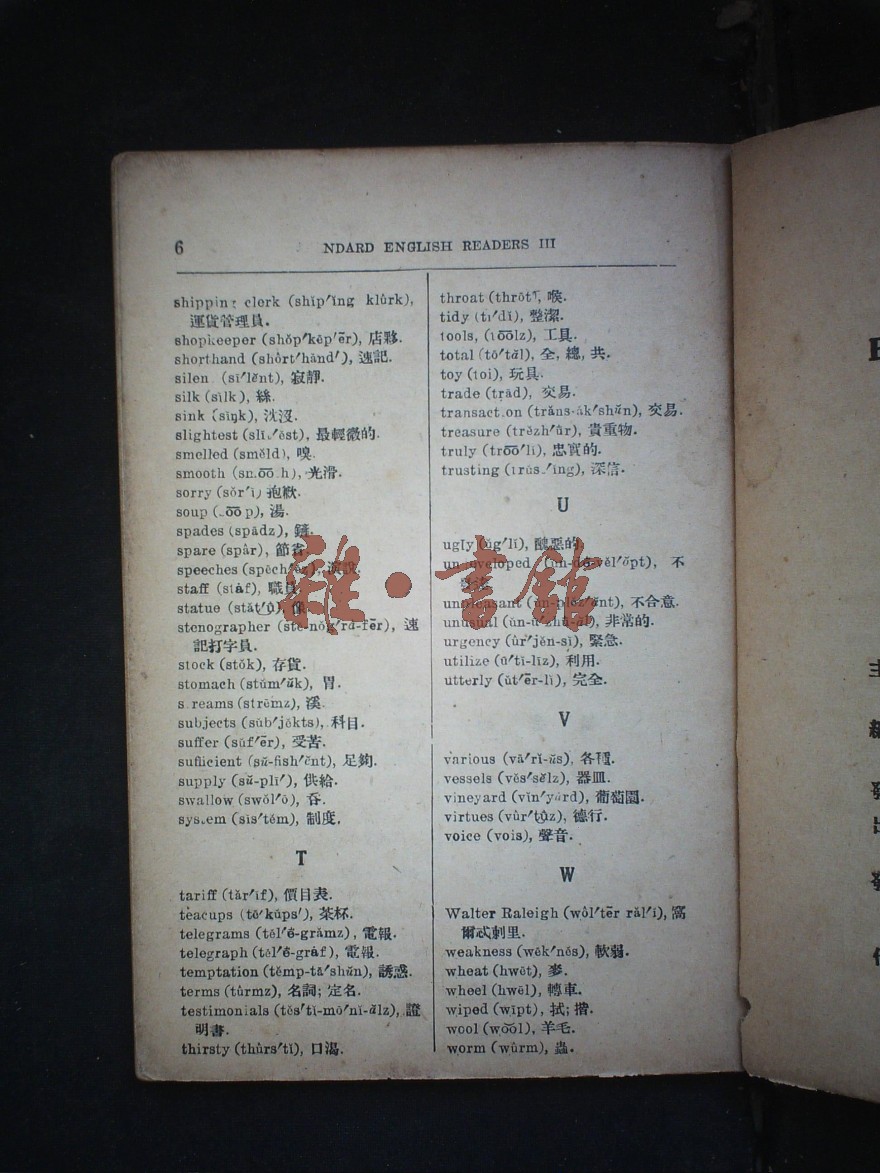 6
NDARD ENGLISH READERS III
shipping clerk (shĭp′ĭng klûrk),
運貨管理員.
shopkeeper (shŏp′kēp′ẽr), 店夥.
shorthand (shôrt′hănd′), 速記.
silen (sī′lĕnt), 寂靜.
silk (sĭlk), 絲.
sink (sĭŋk), 沈沒.
slightest (slī ′ĕst), 最輕微的.
smelled (smĕld), 嗅.
smooth (sm͞oo h), 光滑.
sorry (sŏr′ĭ) 抱歉.
soup ( ͞oo p), 湯.
spades (spādz),
spare (spâr), 節
speeches
staff (stȧf), 職員
statue
stenographer 速
記打字員.
stock (stŏk), 存貨.
stomach (stŭm′ŭk), 胃.
s reams (strēmz), 溪.
subjects (sŭb′jĕkts), 科目.
suffer (sŭf′ẽr), 受苦.
sufficient (sŭ-fish′ĕnt), 足夠.
supply (sŭ-plī′), 供給.
swallow (swŏl′ō), 吞.
sys em (sĭs′tĕm), 制度.
T
tariff (tăr′ĭf), 價目表.
teacups (tē′kŭps′), 茶杯.
telegrams (tĕl′ē-grămz), 電報.
telegraph (tĕl′ē-grȧf), 電報.
temptation (tĕmp-tā′shŭn), 誘惑.
terms (tûrmz), 名詞; 定名.
testimonials (tĕs′tĭ-mō′nĭ-ălz), 證
明書.
thirsty (thûrs′tĭ), 口渴.
throat (thrōt), 喉.
tidy (tī′dĭ), 整潔.
tools, (t͞oolz), 工具.
total (tō′tăl), 全, 總, 共.
toy (toi), 玩具.
trade (trād), 交易.
transact on (trăns-ăk′shŭn), 交易.
treasure (trĕzh′ûr), 貴重物.
truly (tr͞oo′lĭ), 忠實的.
trusting (trŭs ′ĭng), 深信.
U
ugly (ŭg′lĭ), 醜惡的
不
unpleasant 不合意.
unusual 非常的.
urgency (ûr′jĕn-sĭ), 緊急.
utilize (ū′tĭ-līz), 利用.
utterly (ŭt′ẽr-lĭ), 完全.
V
various (vā′rĭ-ŭs), 各種.
vessels (vĕs′sĕlz), 器皿.
vineyard (vĭn′yȧrd), 葡萄園.
virtues (vûr′tụ̄z), 德行.
voice (vois), 聲音.
W
Walter Raleigh (wôl′tẽr răl′ĭ), 窩
爾忒剌里.
weakness (wēk′nĕs), 軟弱.
wheat (hwēt), 麥.
wheel (hwēl), 轉車.
wiped (wīpt), 拭; 揩.
wool (wŏŏl), 羊毛.
worm (wûrm), 蟲.
雜·書館